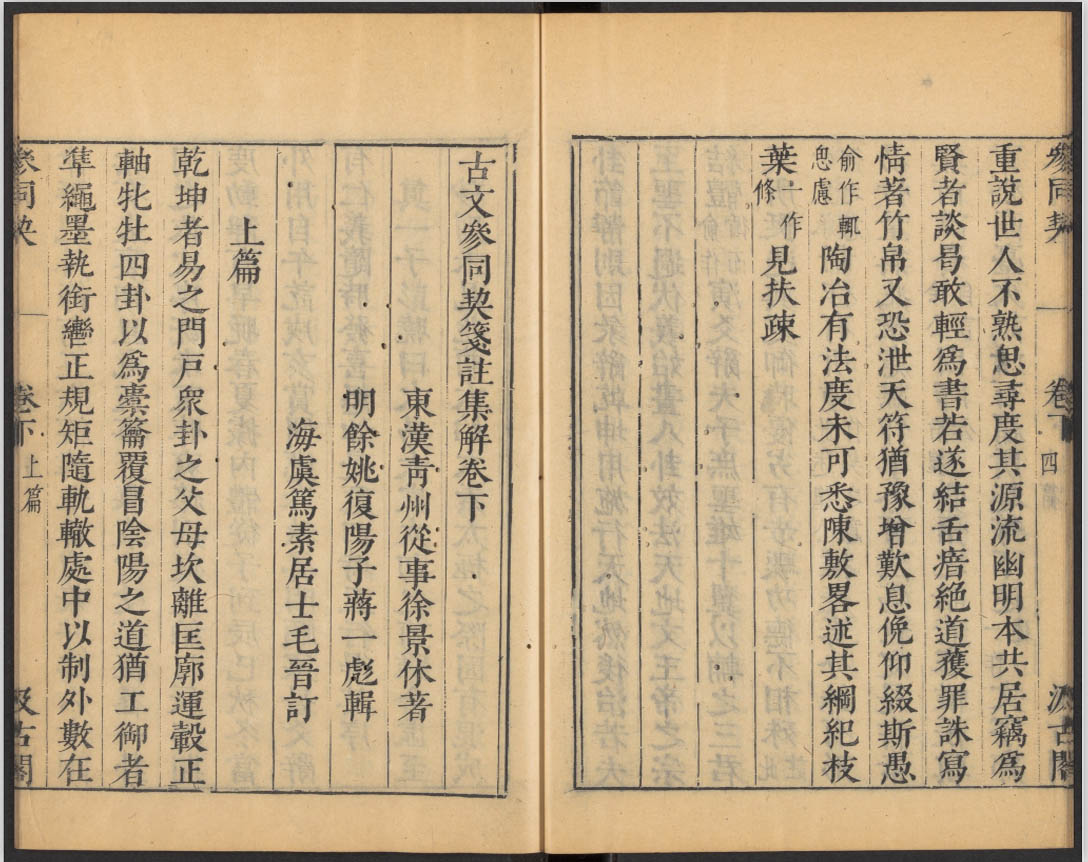 參同契 卷下 四 汲古閣
重說世人不熟思尋度其源流幽明本共居竊爲
賢者談曷敢輕爲書若遂結舌瘖絕道獲罪誅寫
情著竹帛又恐泄天符猶豫增歎息俛仰綴斯愚
俞作輒
思慮
陶冶有法度未可悉陳敷畧述其綱紀枝
葉
一作
條
見扶疎
古文參同契箋註集解卷下
東漢青州從事徐景休著
明餘姚復陽子蔣一彪輯
海虞篤素居士毛晉訂
上篇
乾坤者易之門戶衆卦之父母坎離匡廓運轂正
軸牝牡四卦以爲橐籥覆冒陰陽之道猶工御者
凖繩墨執銜轡正規矩隨軌轍處中以制外數在
參同契 卷下 上篇 汲古閣